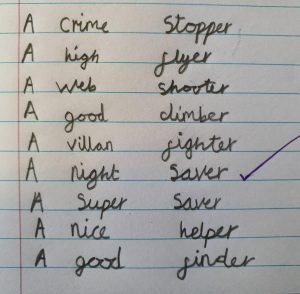 A crime stopper
A high flyer
A web shooter
A good climber
A villan fighter
A night saver
A super saver
A nice helper
A good finder